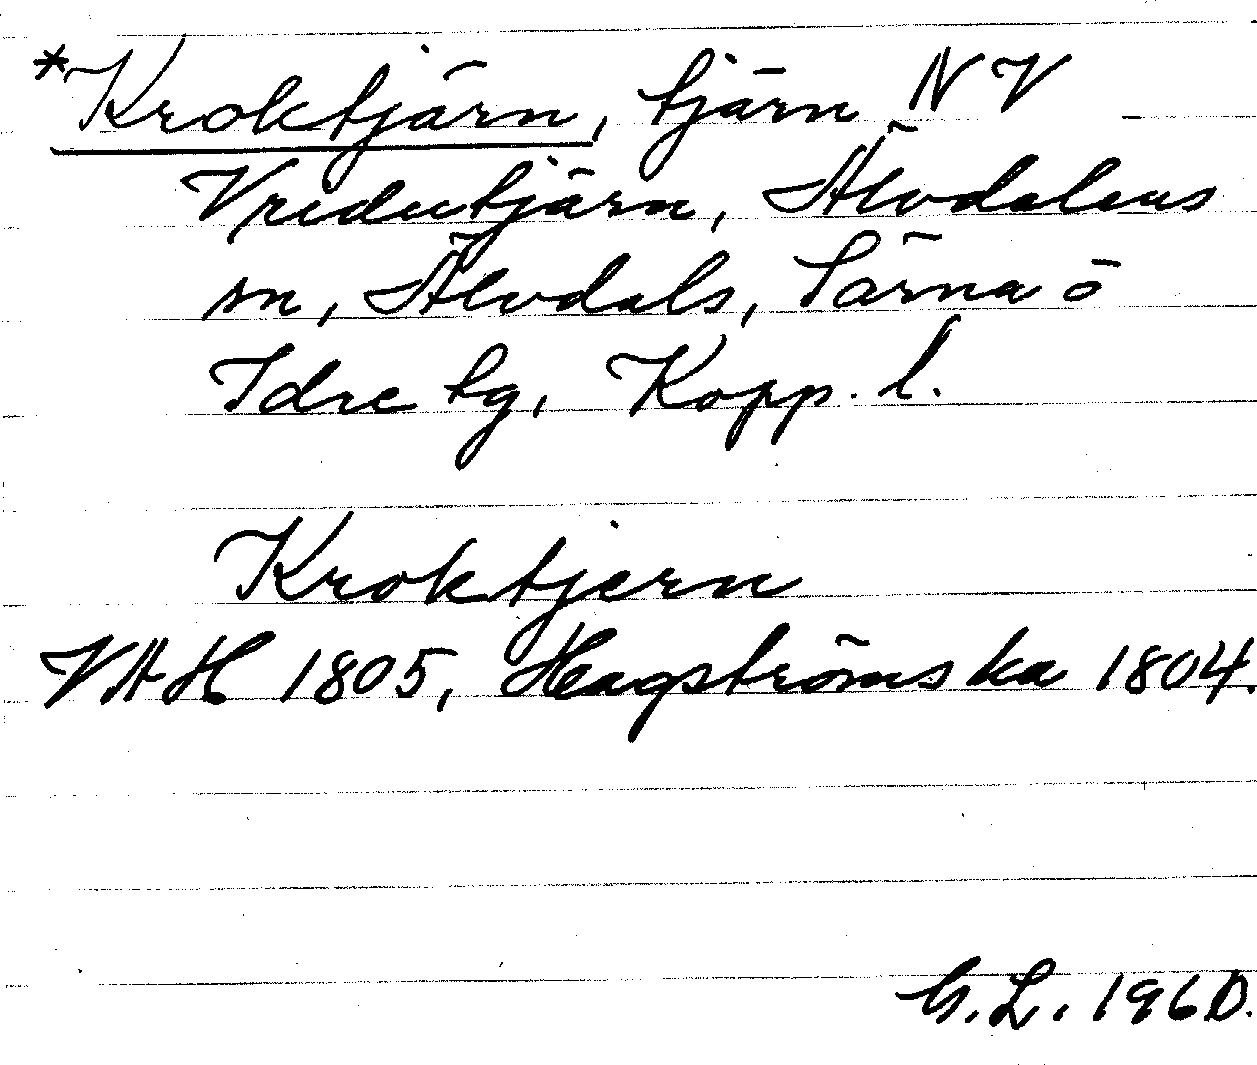 *Kroktjärn, tjärn NV
Vridentjärn, Älvdalens
sn, Älvdals, Särna ō
Idre tg, Kopp. l.
Kroktjern
VAH 1805, Hagströms ka 1804.
G.L. 1960.